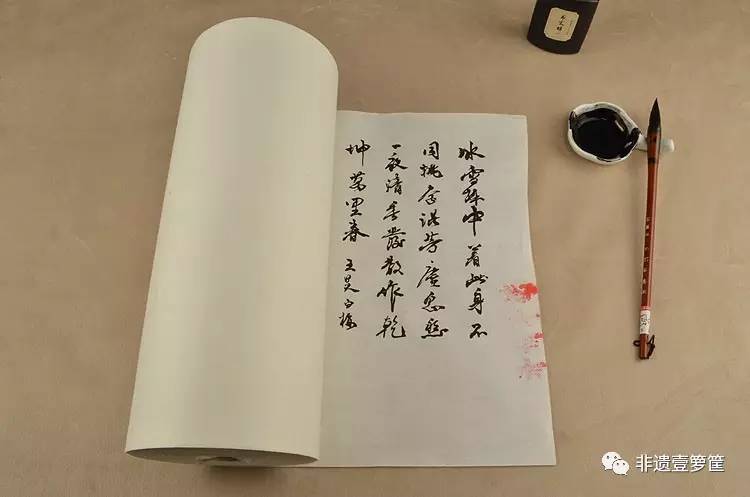 冰雪林中着此身不
同桃李混芳塵忽然
一夜清香發散作乾
坤萬里春 王冕白梅
非遗壹箩筐